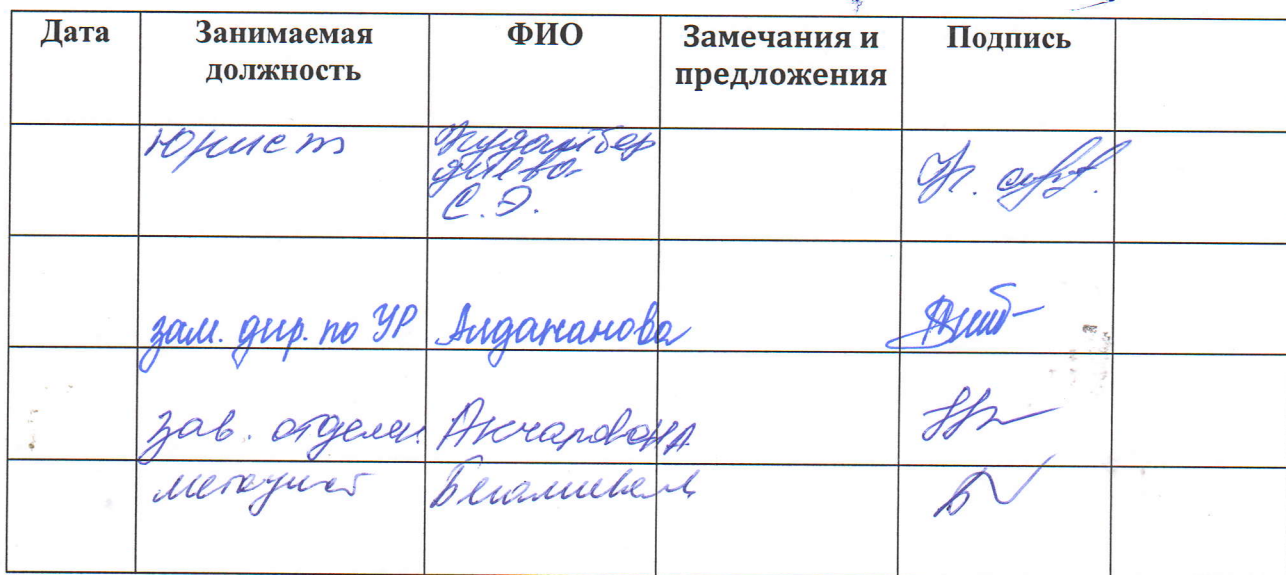 Дата Занимаемая должность ФИО Замечания и предложения Подпись
Юрист Кудайбер
диева
С.Э.
зам. дир. по УР Алдаканова
зав. отделен. Акчарова НА
методист